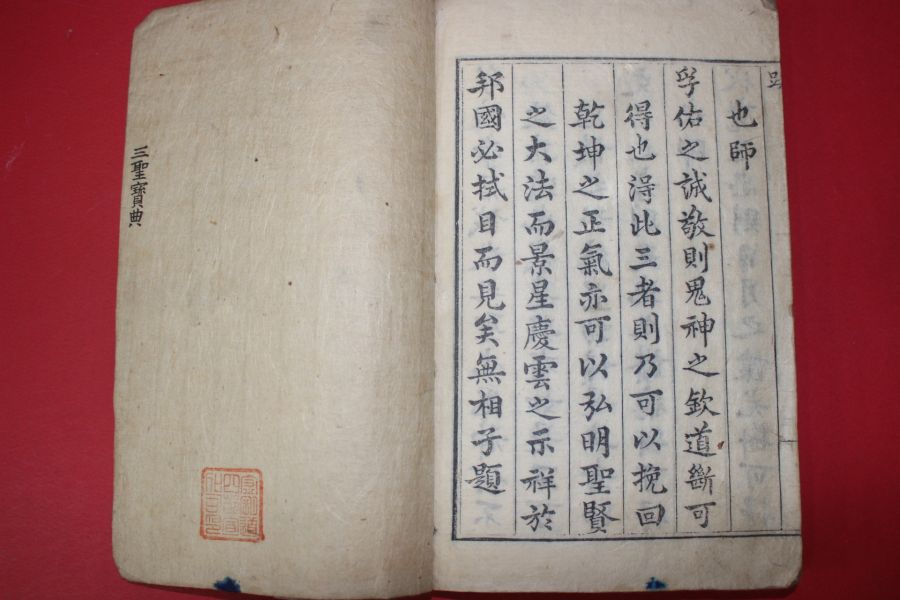 也師
孚佑之誠敬則鬼神之欽道斷可
得也淂此三者則乃可以挽回
乾坤之正氣亦可以弘明聖賢
之大法而景星慶雲之示祥於
邦國必拭目而見矣無相子題
三聖寶典